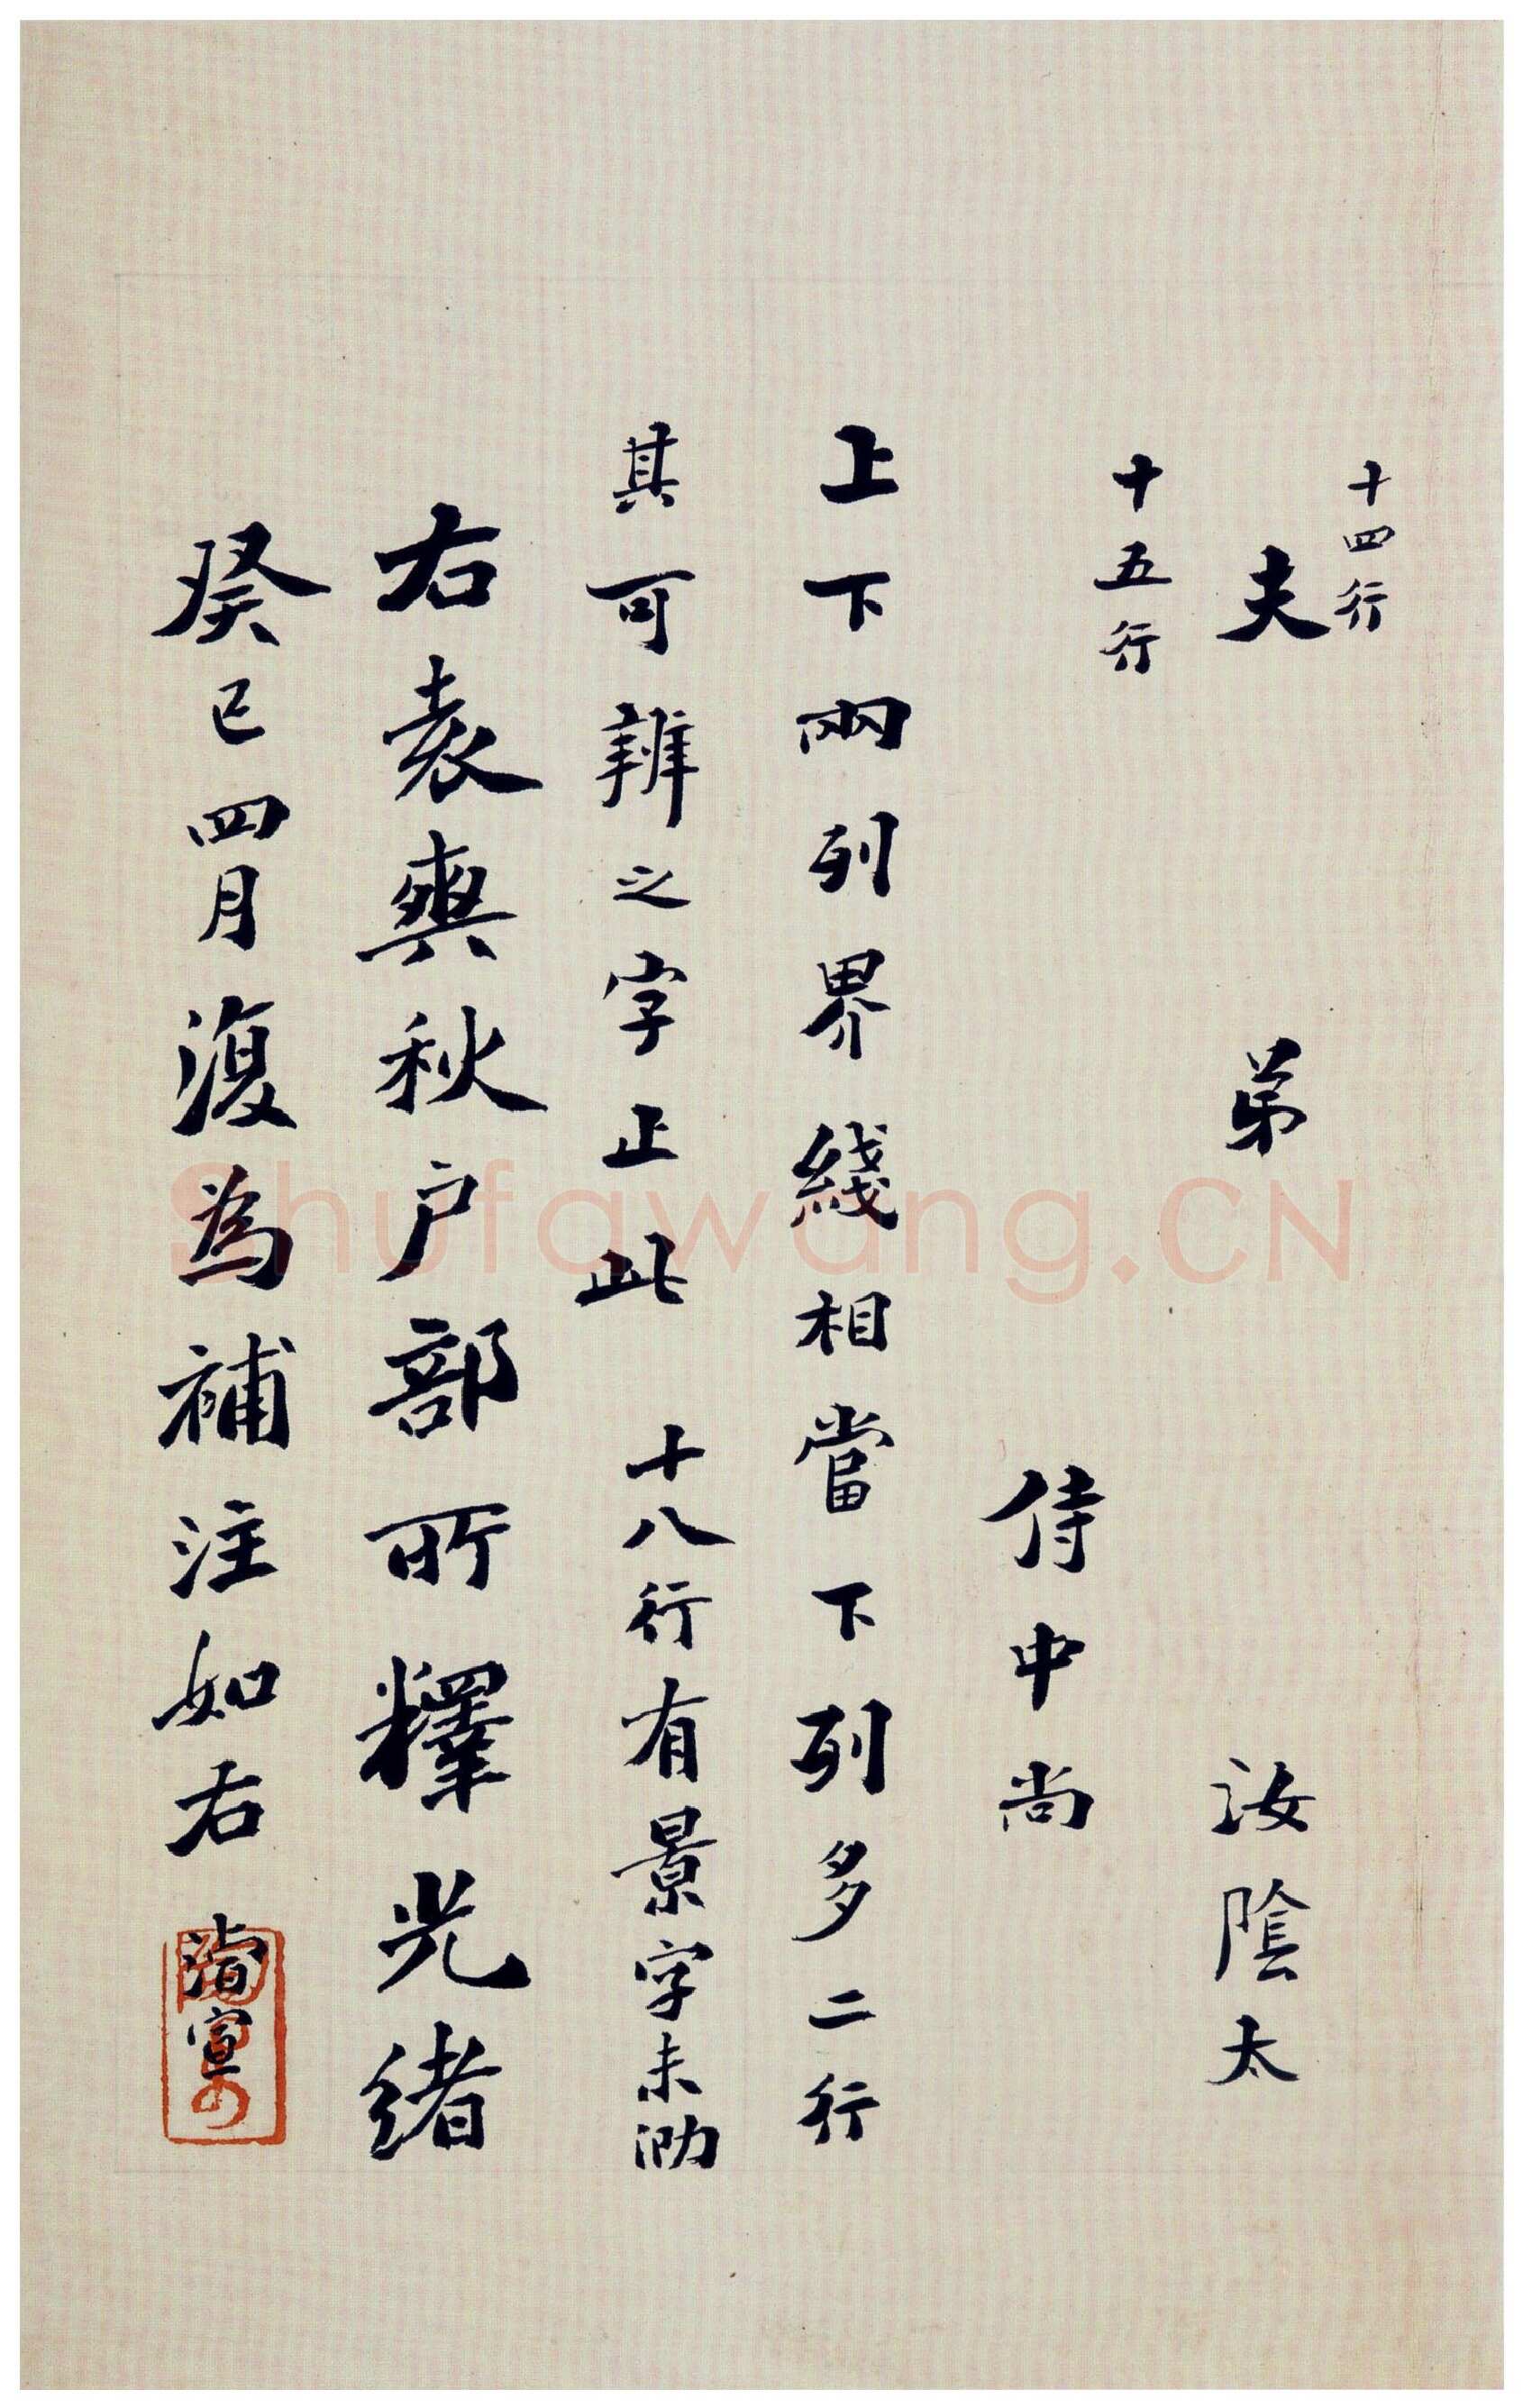 十四行
夫 弟 汝陰太
十五行
侍中尚
上下兩列界綫相當下列多二行
其可辨之字止此 十八行有景字未泐
右袁奭秋户部所釋光緒
癸巳四月復為補注如右
Shufawang.CN